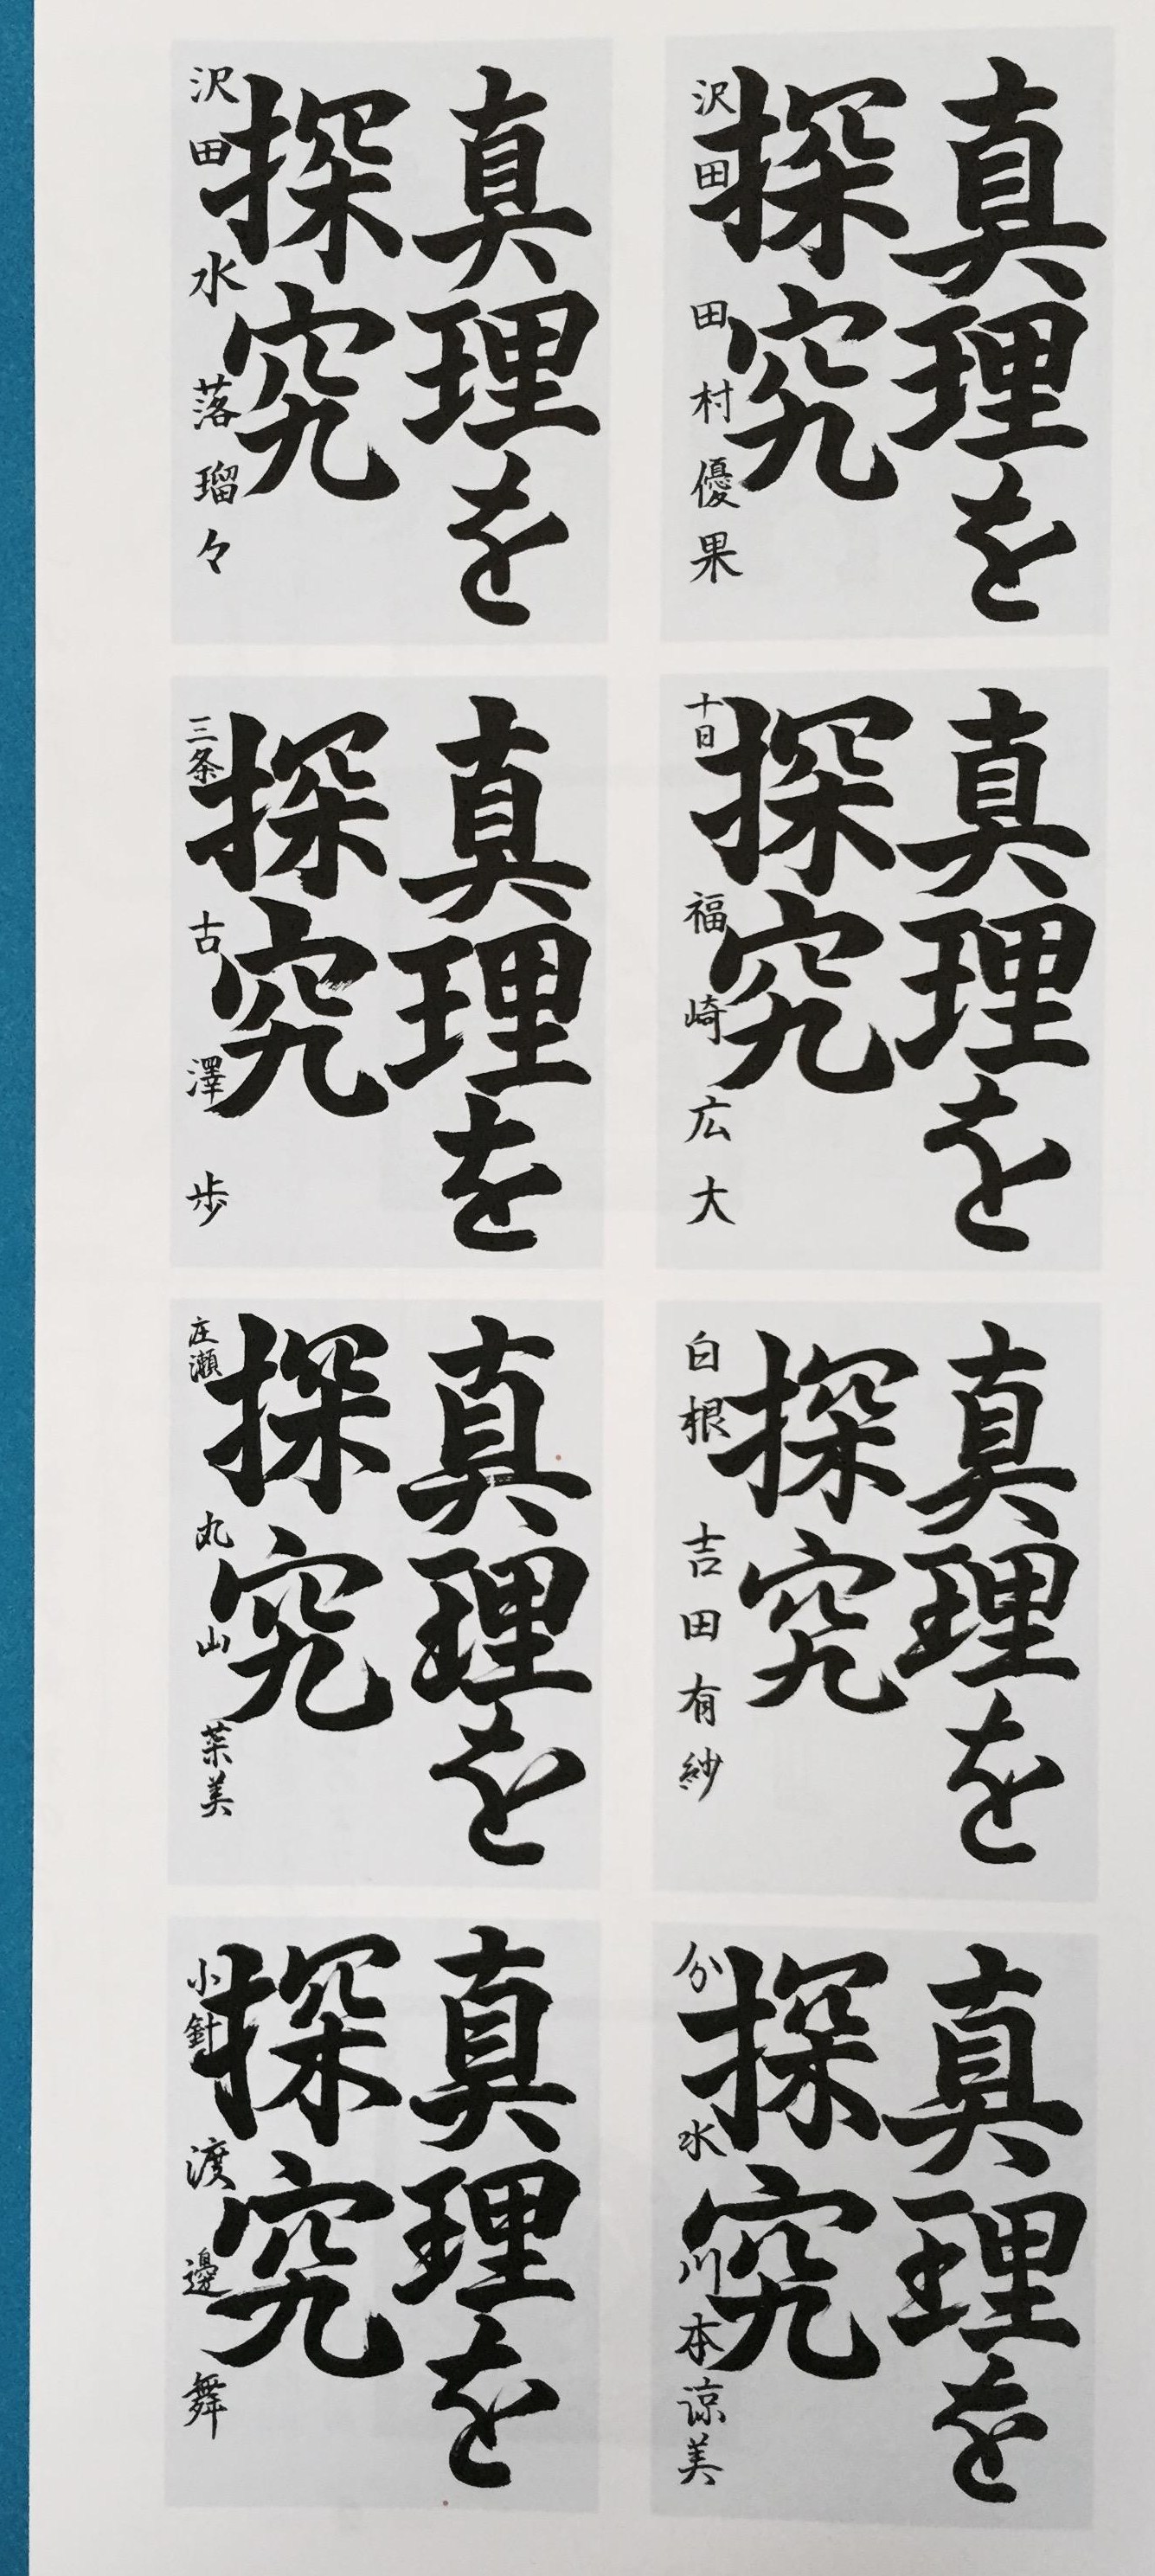 真理を
探究
沢田 田村優果
真理を
探究
沢田 水落瑠々
真理を
探究
十日 福崎広大
真理を
探究
三条 古澤歩
真理を
探究
白根 吉田有紗
真理を
探究
庄瀬 丸山葉美
真理を
探究
分水 川本諒美
真理を
探究
小針 渡邊舞